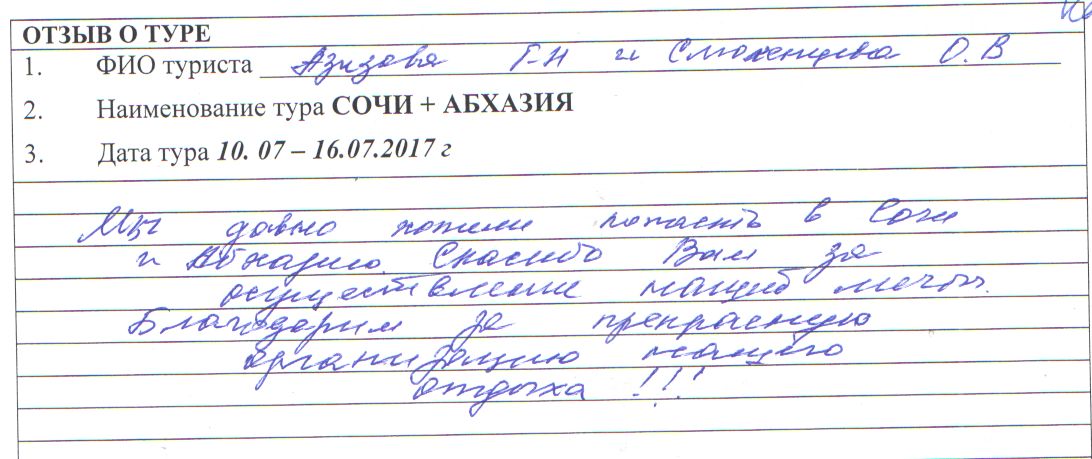 ОТЗЫВ О ТУРЕ
1. ФИО туриста Азизова Г-Н и О.В
2. Наименование тура СОЧИ + АБХАЗИЯ
3. Дата тура 10. 07 – 16.07.2017 г
Мы давно хотели попасть в Сочи
и Абхазию. Спасибо Вам за
осуществление нашей мечты.
Благодарим за прекрасную
организацию нашего
отдыха !!!